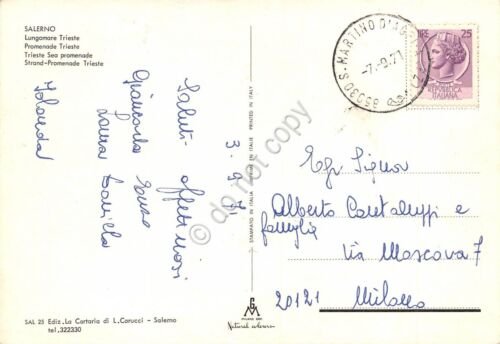 SALERNO
Lungomare Trieste
Promenade Trieste
Trieste Sea promenade
Strand-Promenade Trieste
3. 9. 71
Saluti affettuosi
Giancarlo Enzo
Iolanda
STAMPATO IN ITALIA
PRINTED IN ITALY
do not copy
85030 S. MARTINO D'AGRI
-7.-9.71
LIRE 25
REPUBBLICA
ITALIANA
Egr. Signor
Alberto Cantaluppi e
famiglia
Via Moscova 7
20121 Milano
SAL 25 Ediz. La Cartaria di L. Carucci - Salerno
tel. 322330
GM
Natural colours